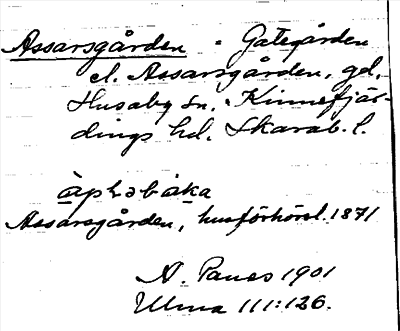 Assarsgården - Gategården
el. Assarsgården, gd,
Husaby sn. Kinnefjär-
dings hd. Skarab. l.
Assarsgården, husförhörsl. 1871
1901
Ulma 111:126.